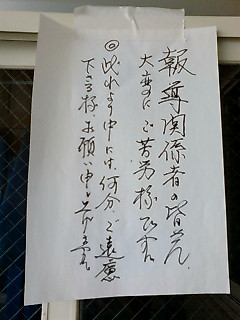 報導関係者の皆さん、
大変にご苦労様です。
◎此れより中には、何分、ご遠慮
下さる様、お願い申し上げます。